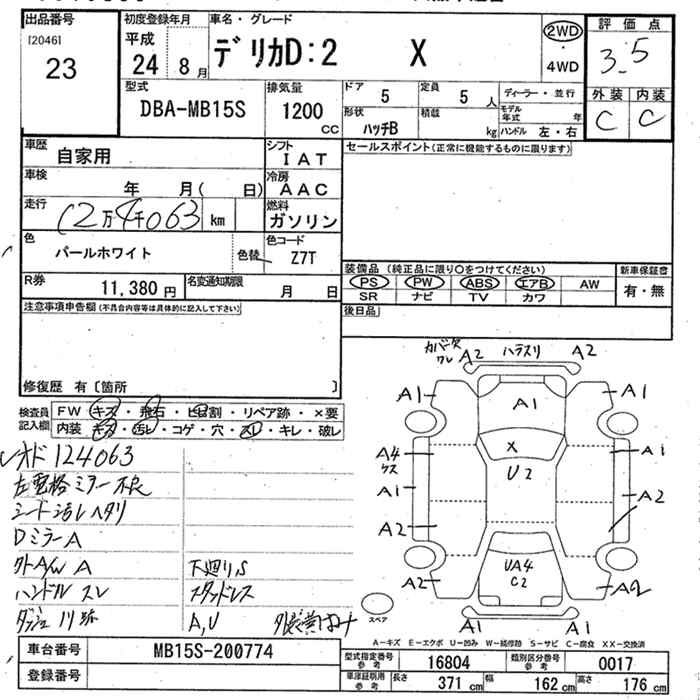 出品番号 初度登録年月 車名・グレード 評価点
[2046] 平成
23 24 8月 デリカD:2 X 2WD ・4WD 3.5
型式 排気量 ドア 定員 ディーラー・並行 外装 内装
DBA-MB15S 1200 CC 5 5人 モデル年式 年 C C
形状 積載
ハッチB kg ハンドル 左・右
車歴 シフト セールスポイント(正常に機能するものに限ります)
自家用 IAT
車検 冷房
年 月( 日) AAC
走行 燃料
12万4千063 km ガソリン
色 色コード
パールホワイト 色替 Z7T
装備品(純正品に限り○をつけてください) 新車保証書
R券 名変通知期限 PS PW ABS エアB AW 有・無
11,380円 月 日 SR ナビ TV カワ
注意事項申告欄(不具合内容等は具体的に記入して下さい) 後日品
修復歴 有〔箇所 〕
検査員記入欄 FW キズ・飛石・ヒビ割・リペア跡・×要
内装 キズ・汚レ・コゲ・穴・スレ・キレ・破レ
カバー欠 ワレ A2 ハラスリ A2
A1 A1 A1
A4 X A1
ウス U2
A1 A2
A2
A2 UA4 A2
C2
A1 A1
スペア
124063
左電格ミラー不良
シート汚レヘタリ
DミラーA
外A/W A 下廻りS
ハンドルスレ スタッドレス
A,U
A-キズ E-エクボ U-凹み W-補修跡 S-サビ C-腐食 XX-交換済
車台番号 MB15S-200774 型式指定番号 参考 16804 類別区分番号 参考 0017
登録番号 車庫証明用 参考 長さ 371 cm 幅 162 cm 高さ 176 cm